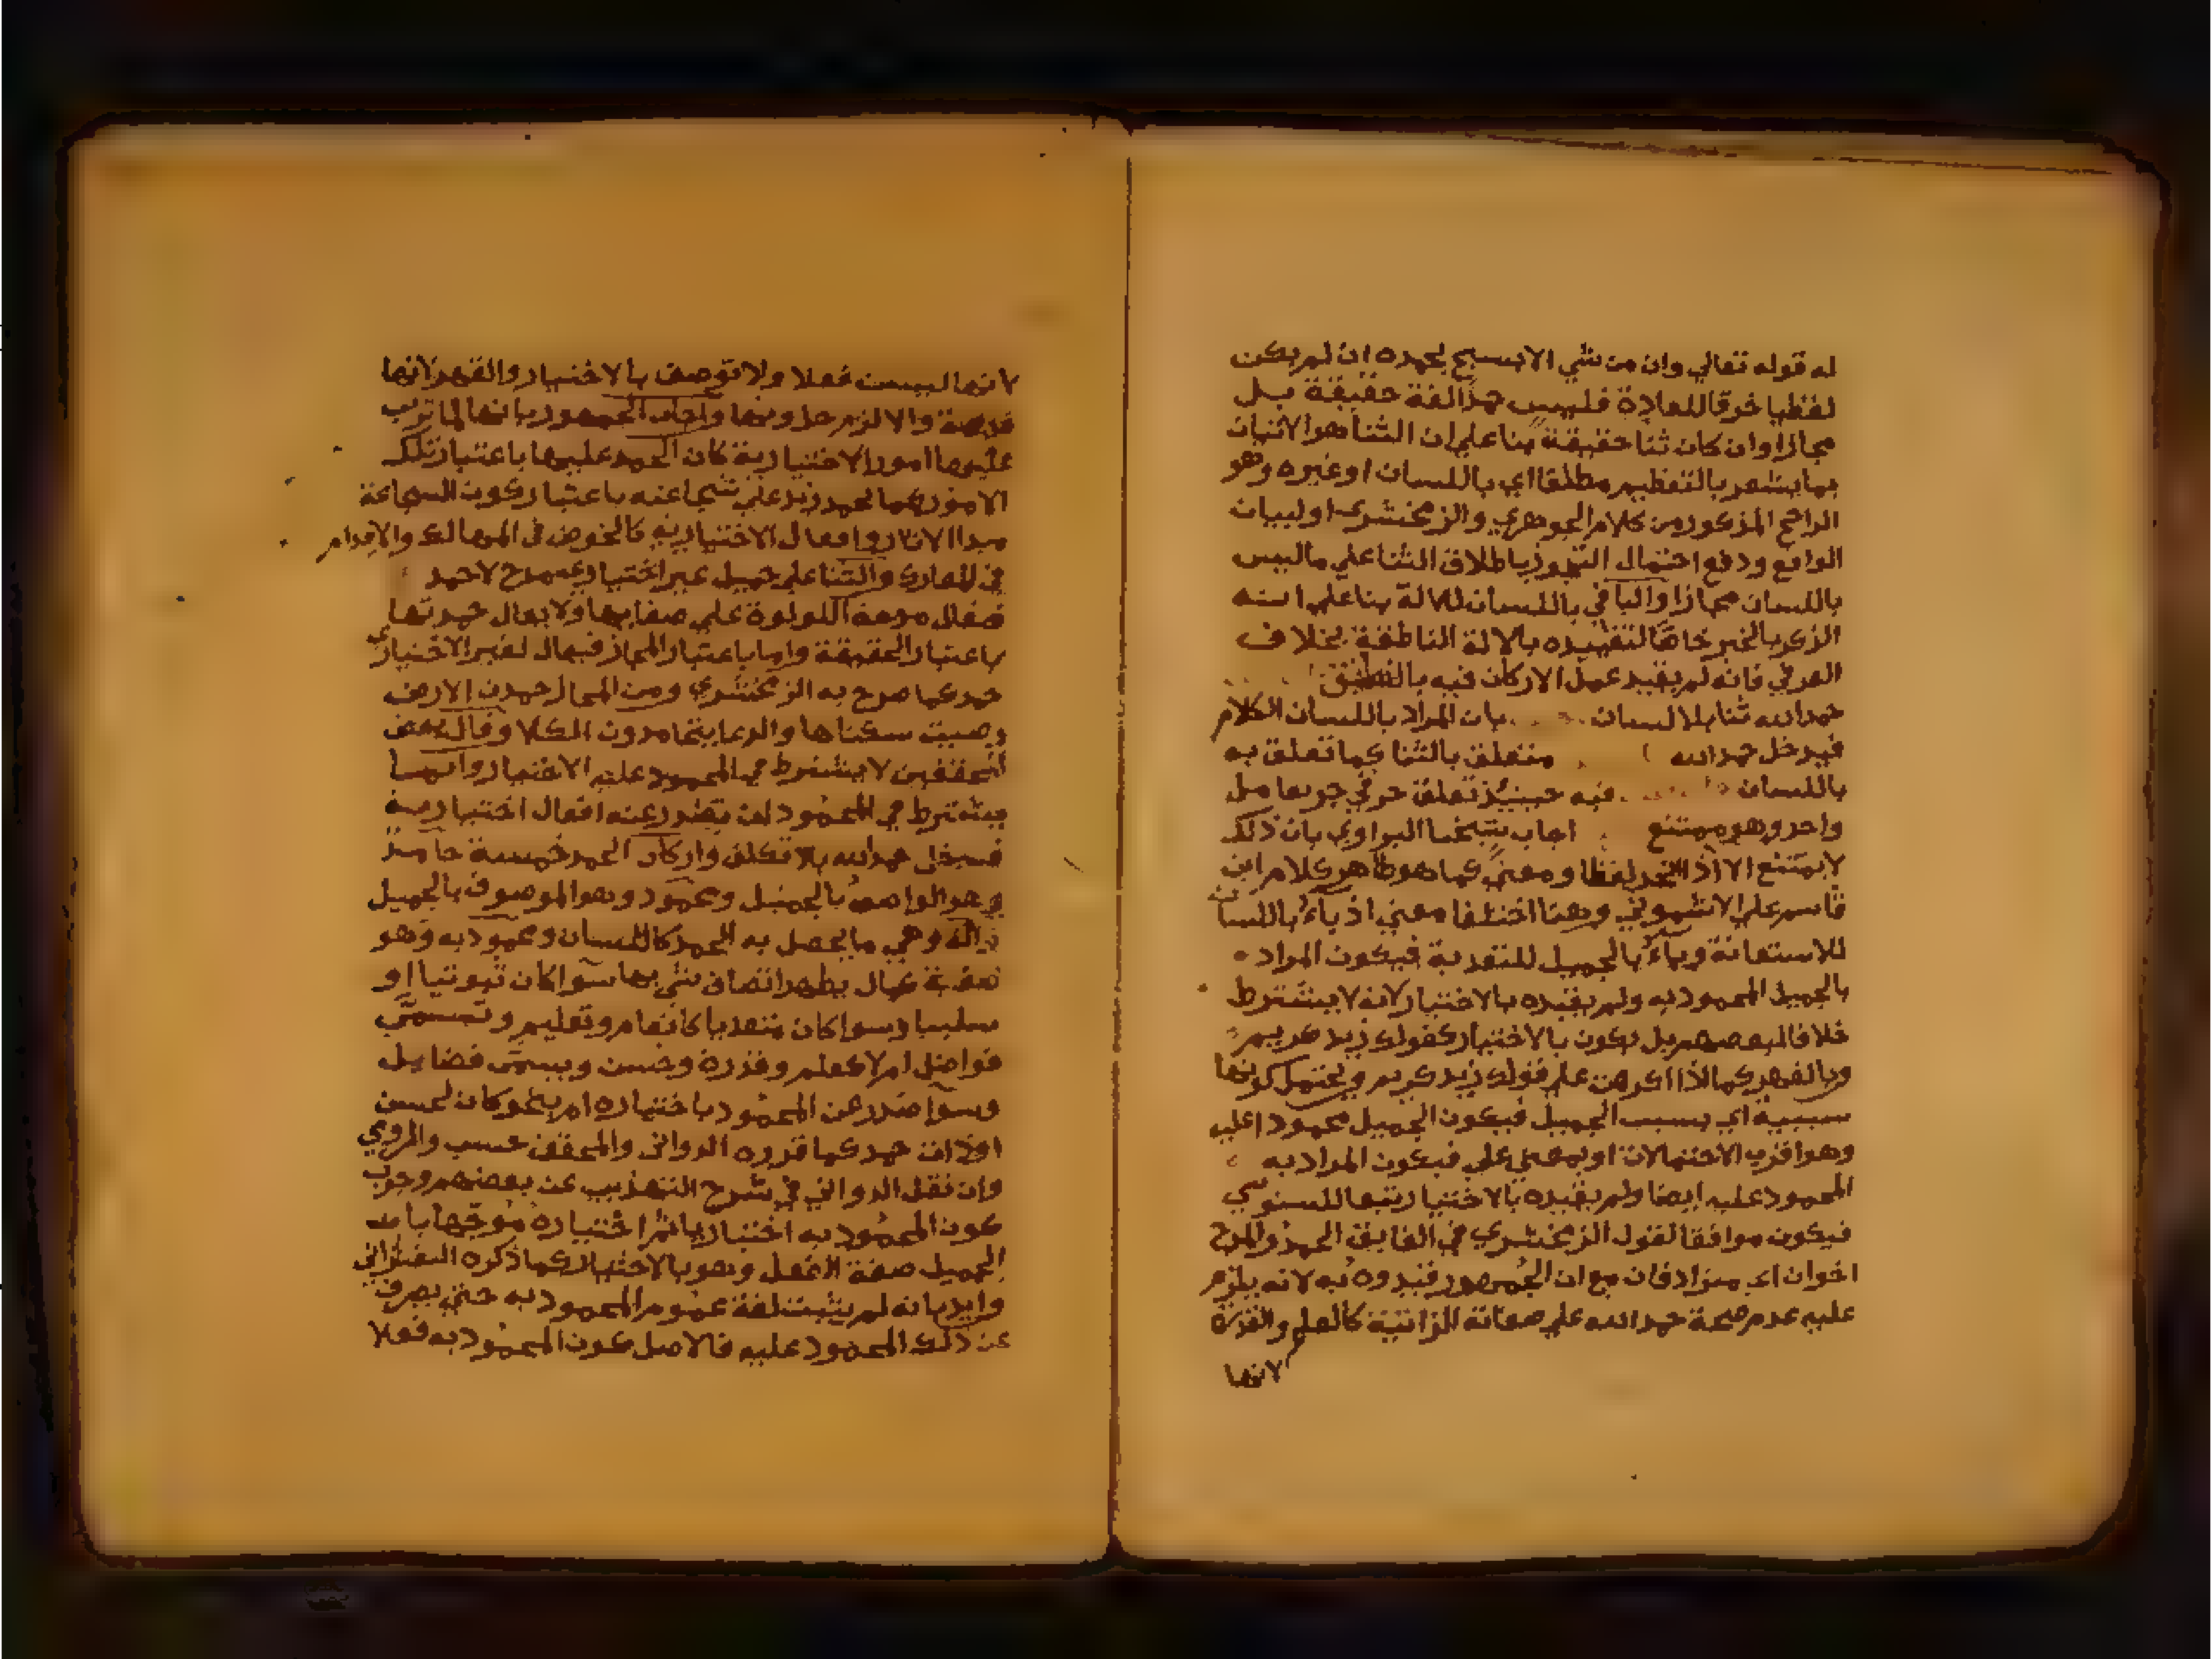 له قوله تعالي وان من شي الا يسبح بحمده ان لم يكن
لفظيا خرقا للعادة فليس حمدا لغة حقيقة بل
مجازا وان كان ثنا حقيقة بنا علي ان الثنا هو الاتيان
بما يشعر بالتعظيم مطلقا اي باللسان او غيره وهو
الراجح المذكور من كلام الجوهري والزمخشري او لبيان
الواقع ودفع احتمال التجوز باطلاق الثنا علي ما ليس
باللسان مجازا والبا في باللسان للالة بنا علي انه
الذكر بالخير خاصا لتقييده بالالة الناطقة بخلاف
العرفي فانه لم يقيد عمل الاركان فيه بالنطق
حمد الله ثنا بلا لسان بان المراد باللسان الكلام
فيدخل حمد الله متعلق بالثنا كما تعلق به
باللسان فيه حينئذ تعلق حرفي جر بعامل
واحد وهو ممتنع اجاب شيخنا البراوي بان ذلك
لا يمتنع الا اذا اتحد لفظا ومعني كما هو ظاهر كلام ابن
قاسم علي الاشموني وهنا اختلفا معني اذ باء باللسان
للاستعانة وباء بالجميل للتعدية فيكون المراد
بالجميل المحمود به ولم يقيده بالاختيار لانه لا يشترط
خلافا لبعضهم بل يكون بالاختيار كقولك زيد كريم
وبالقهر كما اذا اكرهن علي قولك زيد كريم ويحتمل كونها
سببية اي بسبب الجميل فيكون الجميل محمودا عليه
وهو اقرب الاحتمالات او بمعني علي فيكون المراد به
المحمود عليه ايضا ولم يقيده بالاختيار تبعا للسنوسي
فيكون موافقا لقول الزمخشري في الفايق الحمد والمدح
اخوان اي مترادفان مع ان الجمهور قيدوه به لانه يلزم
عليه عدم صحة حمد الله علي صفاته الذاتية كالعلم والقدرة
لانها
لانها ليست فعلا ولا توصف بالاختيار والقهر لانها
قديمة والا لزم حدوثها واجاب الجمهور بانها لما ترتب
عليها امور الاختيارية كان الحمد عليها باعتبار تلك
الامور كما يحمد زيد علي شجاعته باعتبار كون الشجاعة
مبدا الاثار وافعال الاختيارية كالخوض في المهالك والاقدام
في المعارك والثنا علي جميل غير اختياري مدح لا حمد
فيقال مدحت اللولوة علي صفايها ولا يقال حمدتها
باعتبار الحقيقة واما باعتبار المجاز فيقال لغير الاختياري
حمد كما صرح به الزمخشري ومن المجاز حمدت الارض
رضيت سكناها والرعا يتحامدون الكلا وقال بعض
المحققين لا يشترط في المحمود عليه الاختيار وانما
يشترط في المحمود ان تصدر عنه افعال اختيارية
فيدخل حمد الله بلا تكلف واركان الحمد خمسة حامد
وهو الواصف بالجميل ومحمود وهو الموصوف بالجميل
والة وهي ما يحصل به الحمد كاللسان ومحمود به وهو
صفة كمال يظهر اتصاف شي بها سوا كان ثبوتيا او
سلبيا وسوا كان متعديا كانعام وتعليم وتسمي
فواضل ام لا كعلم وقدرة وحسن ويسمي فضايل
وسوا صدر عن المحمود باختياره ام بغيره كان لحسن
او ذات حمد كما قرره الدواني والمحقق حسب والمروي
وان نقل الدواني في شرح التهذيب عن بعضهم وجوب
كون المحمود به اختياريا اختياره موجها بان
الجميل صفة الفعل وهو بالاختيار كما ذكره التفتازاني
وايد بانه لم يثبت لغة عموم المحمود به حتي يصرف
عن ذلك المحمود عليه فالاصل كون المحمود به فعلا